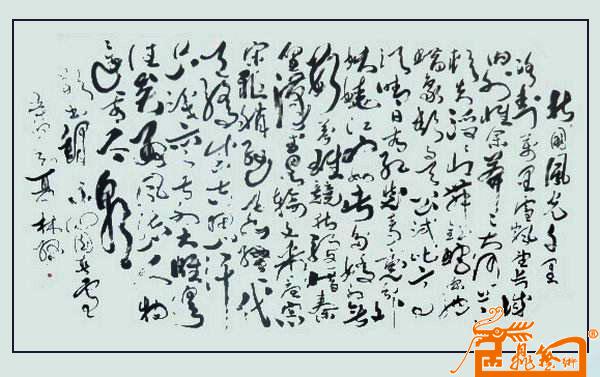 北国風光千里
冰封萬里雪飘望长城
内外惟余莽莽大河上下
顿失滔滔山舞银蛇原驰
蜡象欲与天公试比高
须晴日看红装素裹分外
妖娆江山如此多娇引无
数英雄競折腰惜秦
皇汉武略输文采唐宗
宋祖稍逊风骚一代
天骄成吉思汗
只识弯弓射大雕俱
往矣数風流人物
还看今朝
沁园春雪
夏林